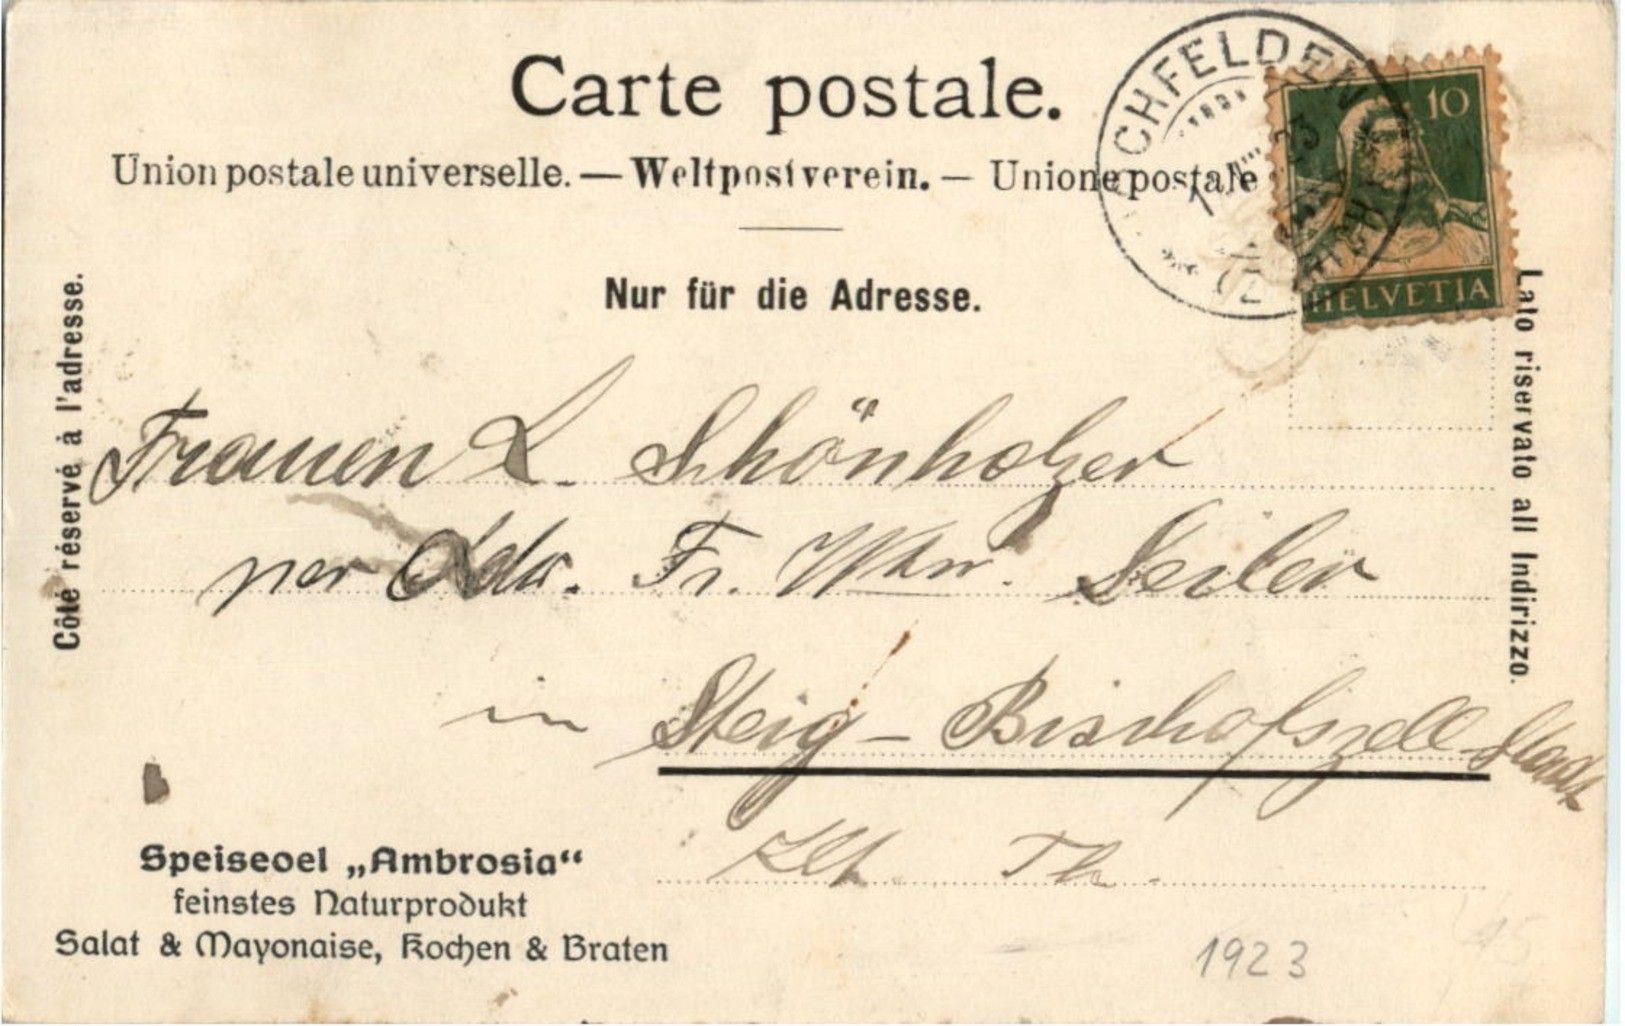 Carte postale.
Union postale universelle. — Weltpostverein. — Unione postale
CHFELDEN
10
HELVETIA
Nur für die Adresse.
Côté réservé à l'adresse.
Lato riservato all Indirizzo.
Frauen L. Schönholzer
per Adr. Fr. Wwe. Seiler
in Steig - Bischofszell
Kt. Th.
Speiseoel „Ambrosia“
feinstes Naturprodukt
Salat & Mayonaise, Kochen & Braten
1923